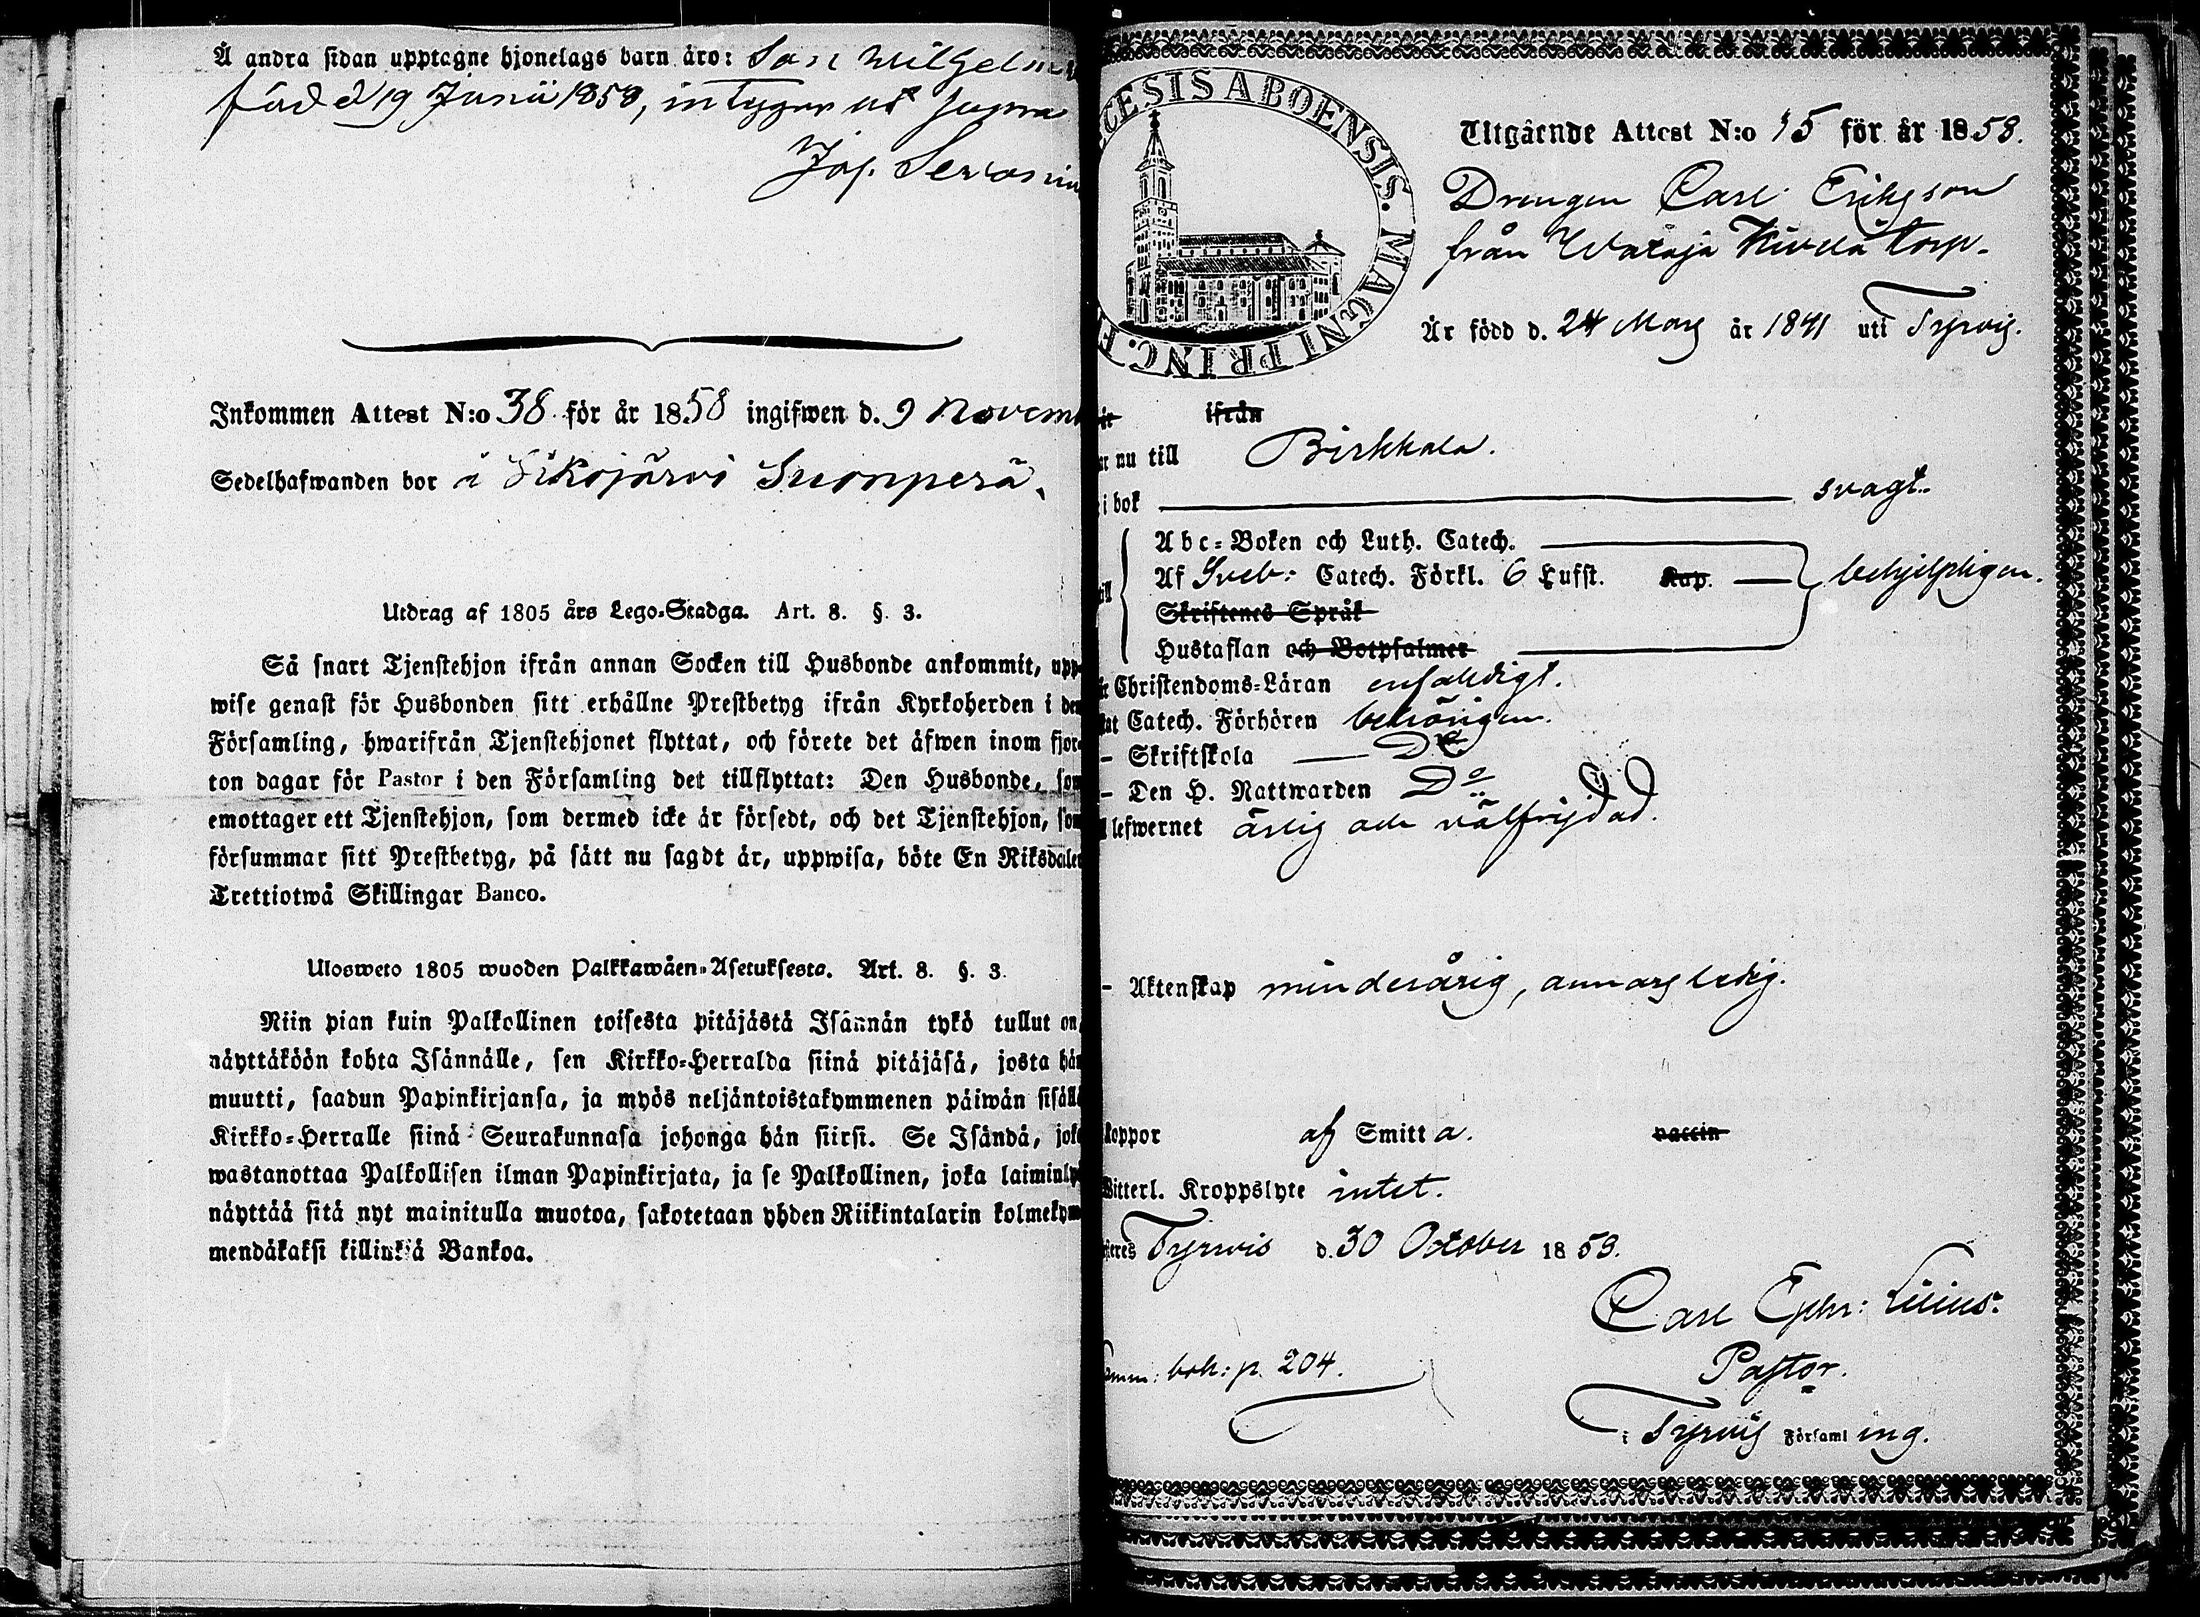 Å andra sidan upptagne hjonelags barn äro: Son Wilhelm
född d 19 Junii 1858, intygar ut supra
Jos.
Inkommen Attest N:o 38 för år 1858 ingifwen d. 9 Novemb
Sedelhafwanden bor i Sikojärvi Suonperä.
Utdrag af 1805 års Lego-Stadga. Art. 8. §. 3.
Så snart Tjenstehjon ifrån annan Socken till Husbonde ankommit, upp-
wise genast för Husbonden sitt erhållne Prestbetyg ifrån Kyrkoherden i den
Församling, hwarifrån Tjenstehjonet flyttat, och förete det äfwen inom fjor-
ton dagar för Pastor i den Församling det tillflyttat: Den Husbonde, som
emottager ett Tjenstehjon, som dermed icke är försedt, och det Tjenstehjon, som
försummar sitt Prestbetyg, på sätt nu sagdt är, uppwisa, böte En Riksdaler
Trettiotwå Skillingar Banco.
Ulosweto 1805 wuoden Palkkawäen-Asetuksesta. Art. 8. §. 3.
Niin pian kuin Palkollinen toisesta pitäjästä Isännän tykö tullut on,
näyttäköön kohta Isännälle, sen Kirkko-Herralda siinä pitäjäsä, josta hän
muutti, saadun Papinkirjansa, ja myös neljäntoistakymmenen päiwän sisällä
Kirkko-Herralle siinä Seurakunnasa johonga hän siirsi. Se Isändä, joka
wastanottaa Palkollisen ilman Papinkirjata, ja se Palkollinen, joka laiminly
näyttää sitä nyt mainitulla muotoa, sakotetaan yhden Riikintalarin kolmekym-
mendäkaksi killinkiä Bankoa.
CESIS ABOENSIS. MAGNI PRINC. F
Utgående Attest N:o 15 för år 1858.
Drengen Carl Eriksson
från Wataja Kivelä torp.
Är född d. 24 Mars år 1841 uti Tyrvis.
ifrån
nu till Birkkala.
i bok svagt.
Abc-Boken och Luth. Catech.
Af Sveb: Catech. Förkl. 6 Hufst. Kap. behjelpligen.
Skriftenes Språk
Hustaflan och Botpsalmer
Christendoms-Läran enfaldigt.
Catech. Förhören behörigen.
- Skriftskola Do
- Den H. Nattwarden Do
lefwernet ärlig och välfrejdad.
- Äktenskap minderårig, annars ledig.
koppor af Smitta. vaccin
Witterl. Kroppslyte intet.
Tyrwis d. 30 October 1858.
Carl Ephr: Lilius.
Pastor.
bok: p. 204.
i Tyrvis Församling.